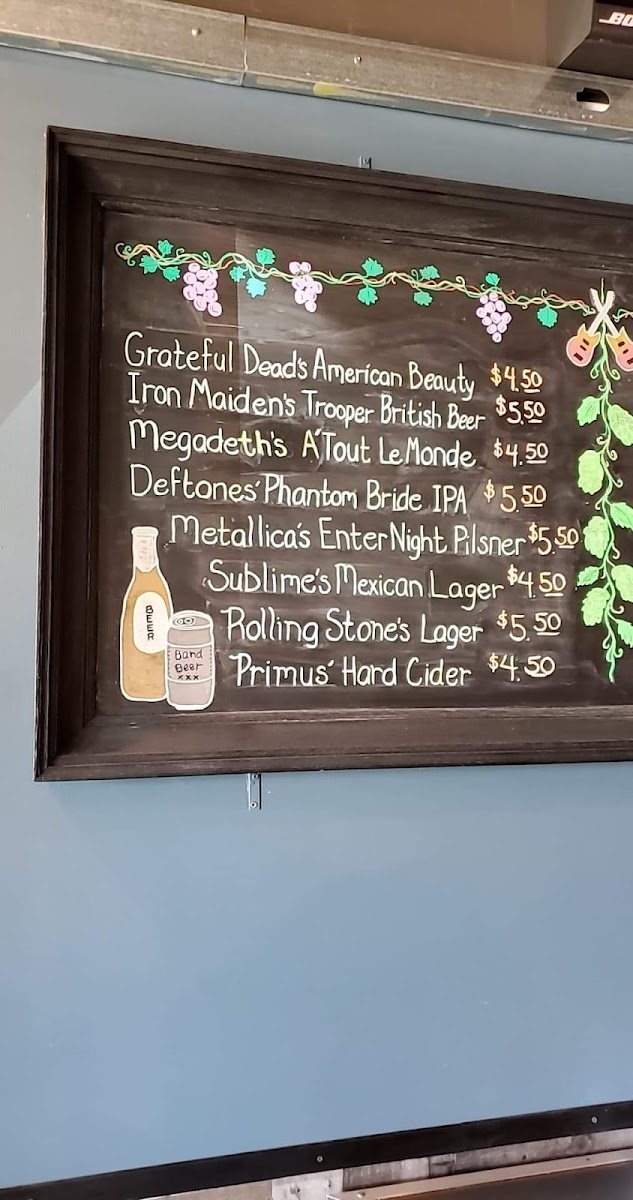 BO
Grateful Dead's American Beauty $4.50
Iron Maiden's Trooper British Beer $5.50
Megadeth's A'Tout Le Monde $4.50
Deftones' Phantom Bride IPA $5.50
Metallica's Enter Night Pilsner $5.50
Sublime's Mexican Lager $4.50
Rolling Stone's Lager $5.50
Primus' Hard Cider $4.50
BEER
Band
Beer
xxx